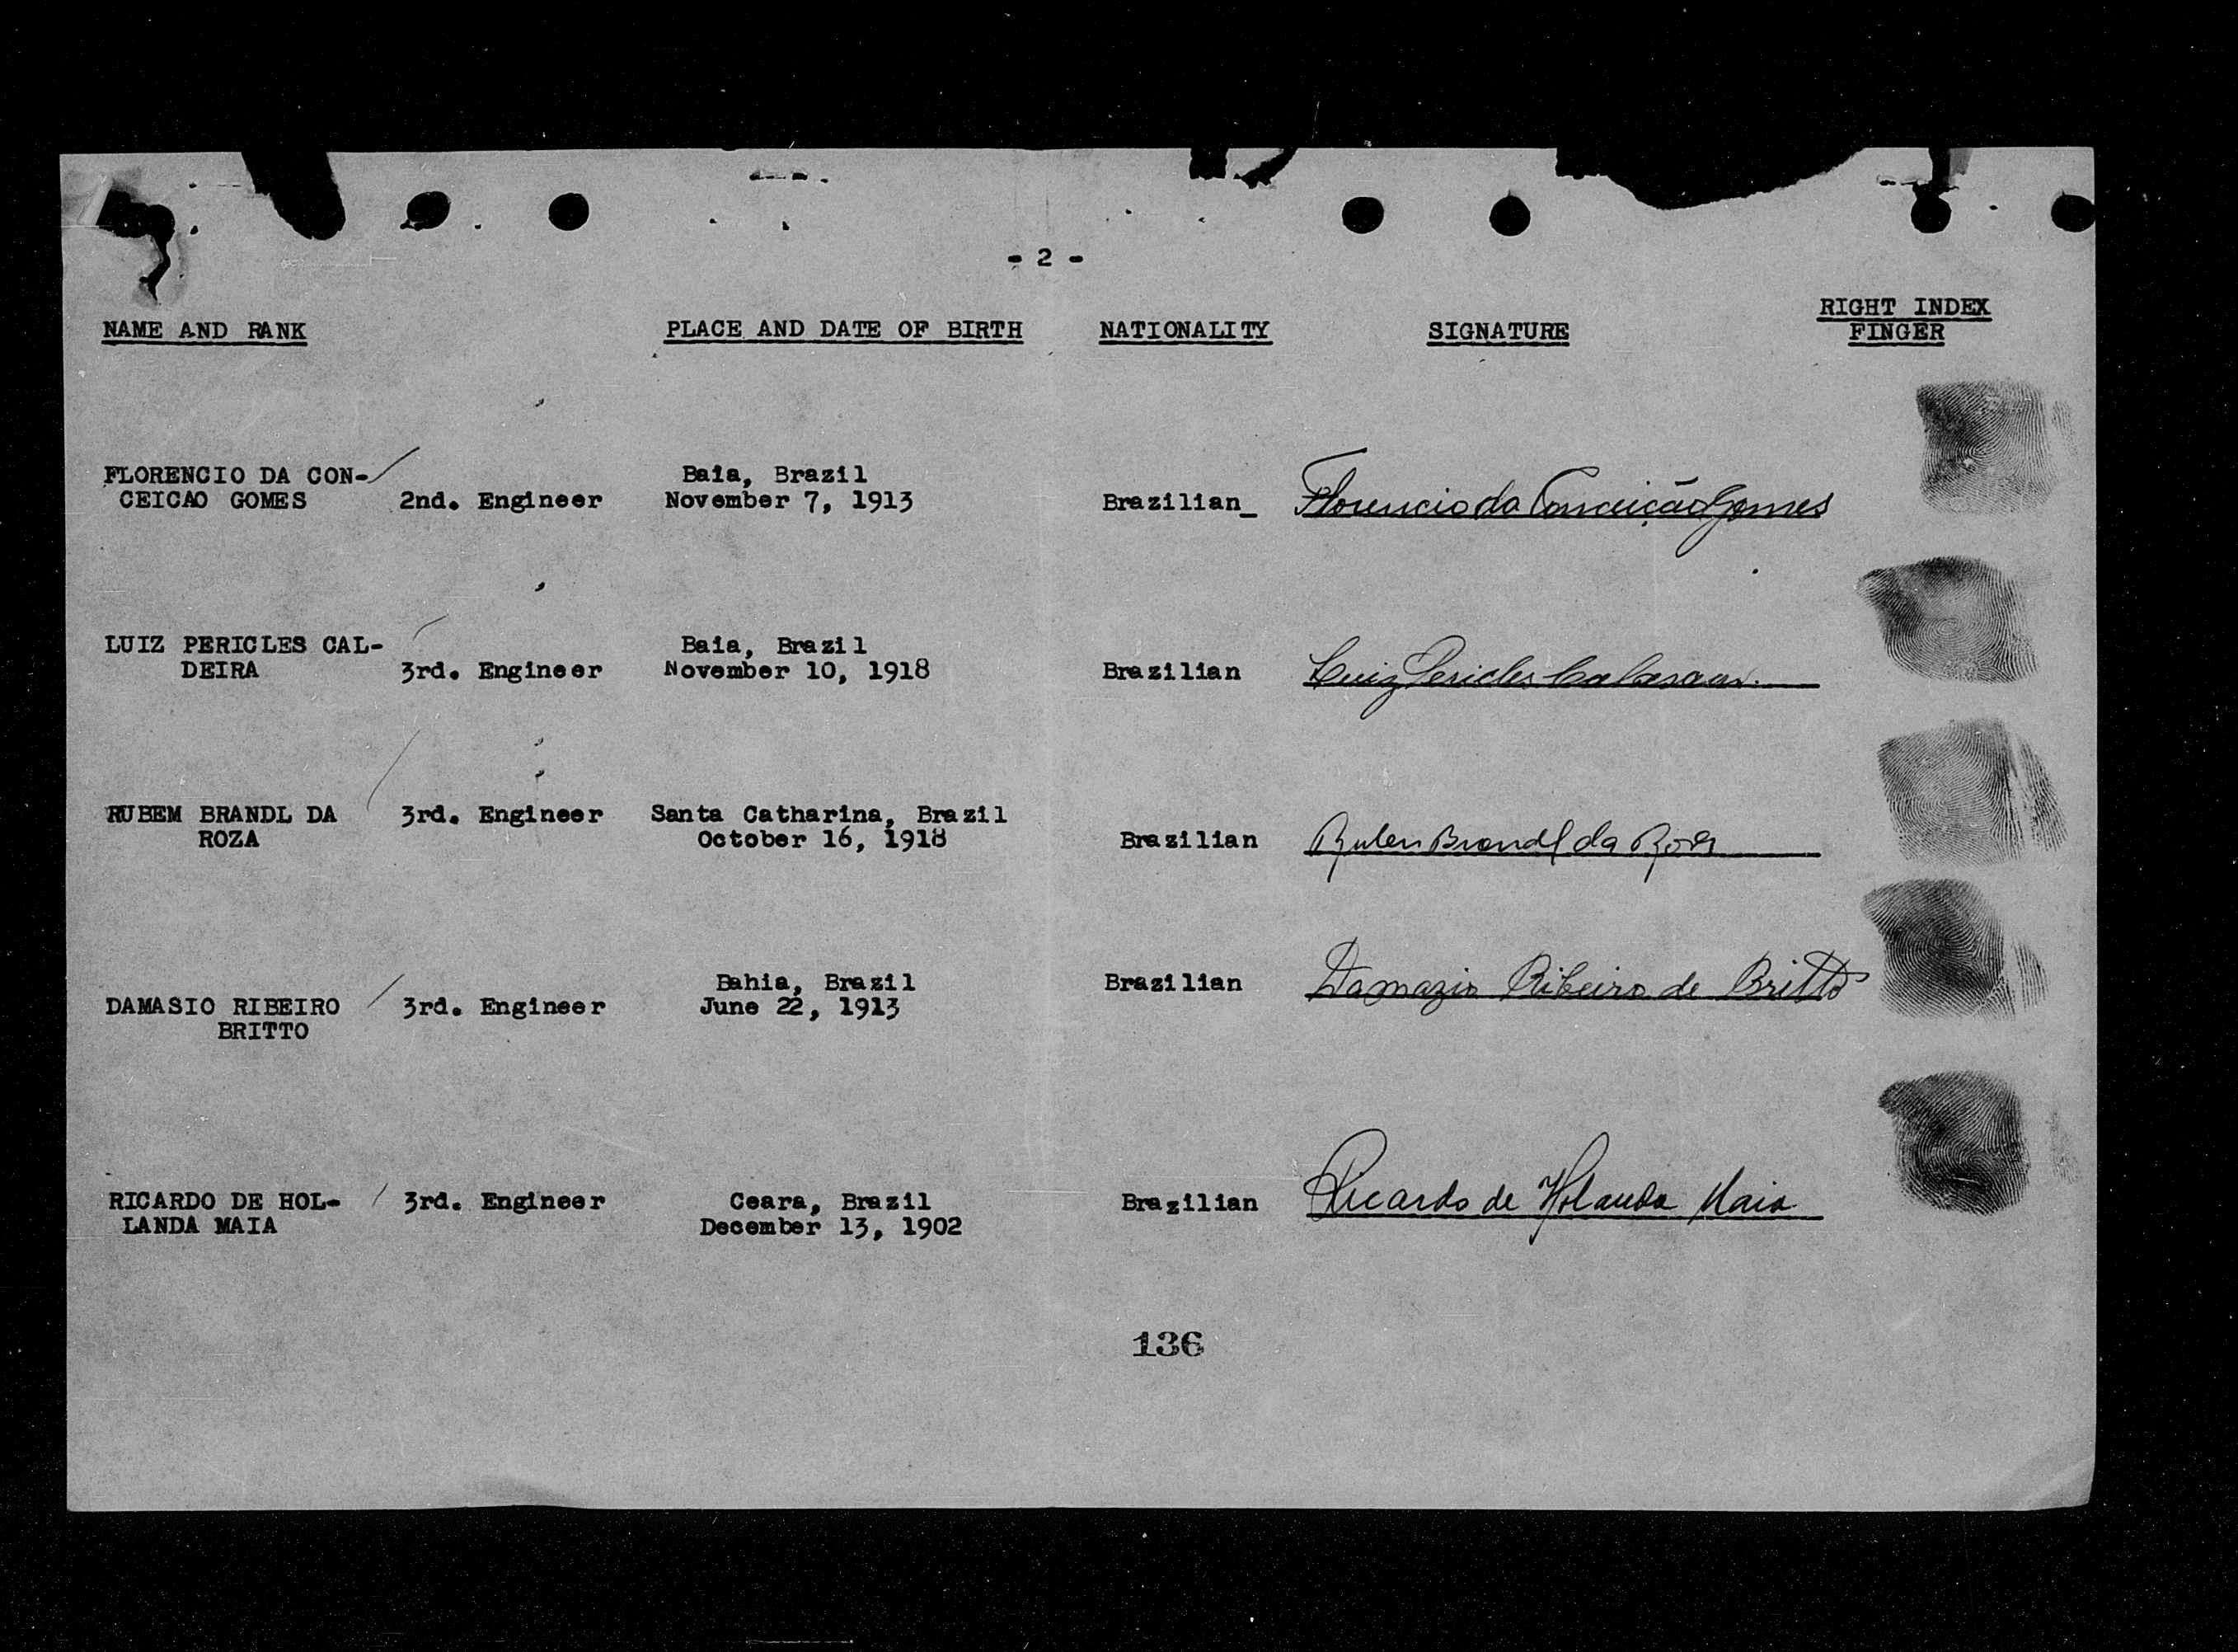 - 2 -
NAME AND RANK PLACE AND DATE OF BIRTH NATIONALITY SIGNATURE RIGHT INDEX
FINGER
FLORENCIO DA CON- Baia, Brazil
CEICAO GOMES 2nd. Engineer November 7, 1913 Brazilian_ Florencio da Conceição Gomes
LUIZ PERICLES CAL- Baia, Brazil
DEIRA 3rd. Engineer November 10, 1918 Brazilian Luiz Pericles
RUBEM BRANDL DA 3rd. Engineer Santa Catharina, Brazil
ROZA October 16, 1918 Brazilian Ruben Brandl da Roza
Bahia, Brazil Brazilian Damazio Ribeiro de Britto
DAMASIO RIBEIRO 3rd. Engineer June 22, 1913
BRITTO
RICARDO DE HOL- 3rd. Engineer Ceara, Brazil Brazilian Ricardo de Holanda Maia
LANDA MAIA December 13, 1902
136